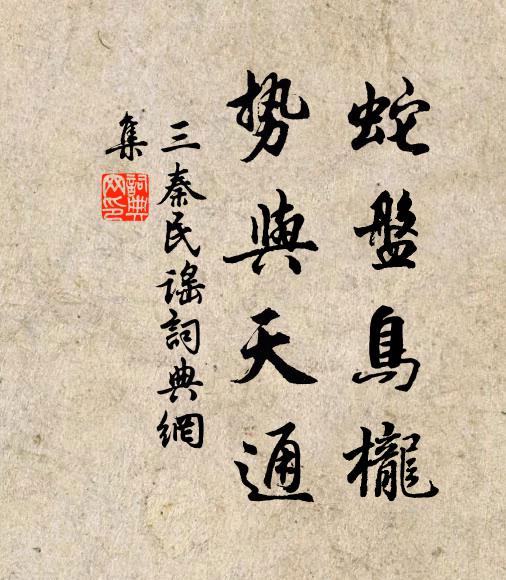 蛇盤鳥櫳
势與天通
三秦民謠詞典網
集
詞典
网印